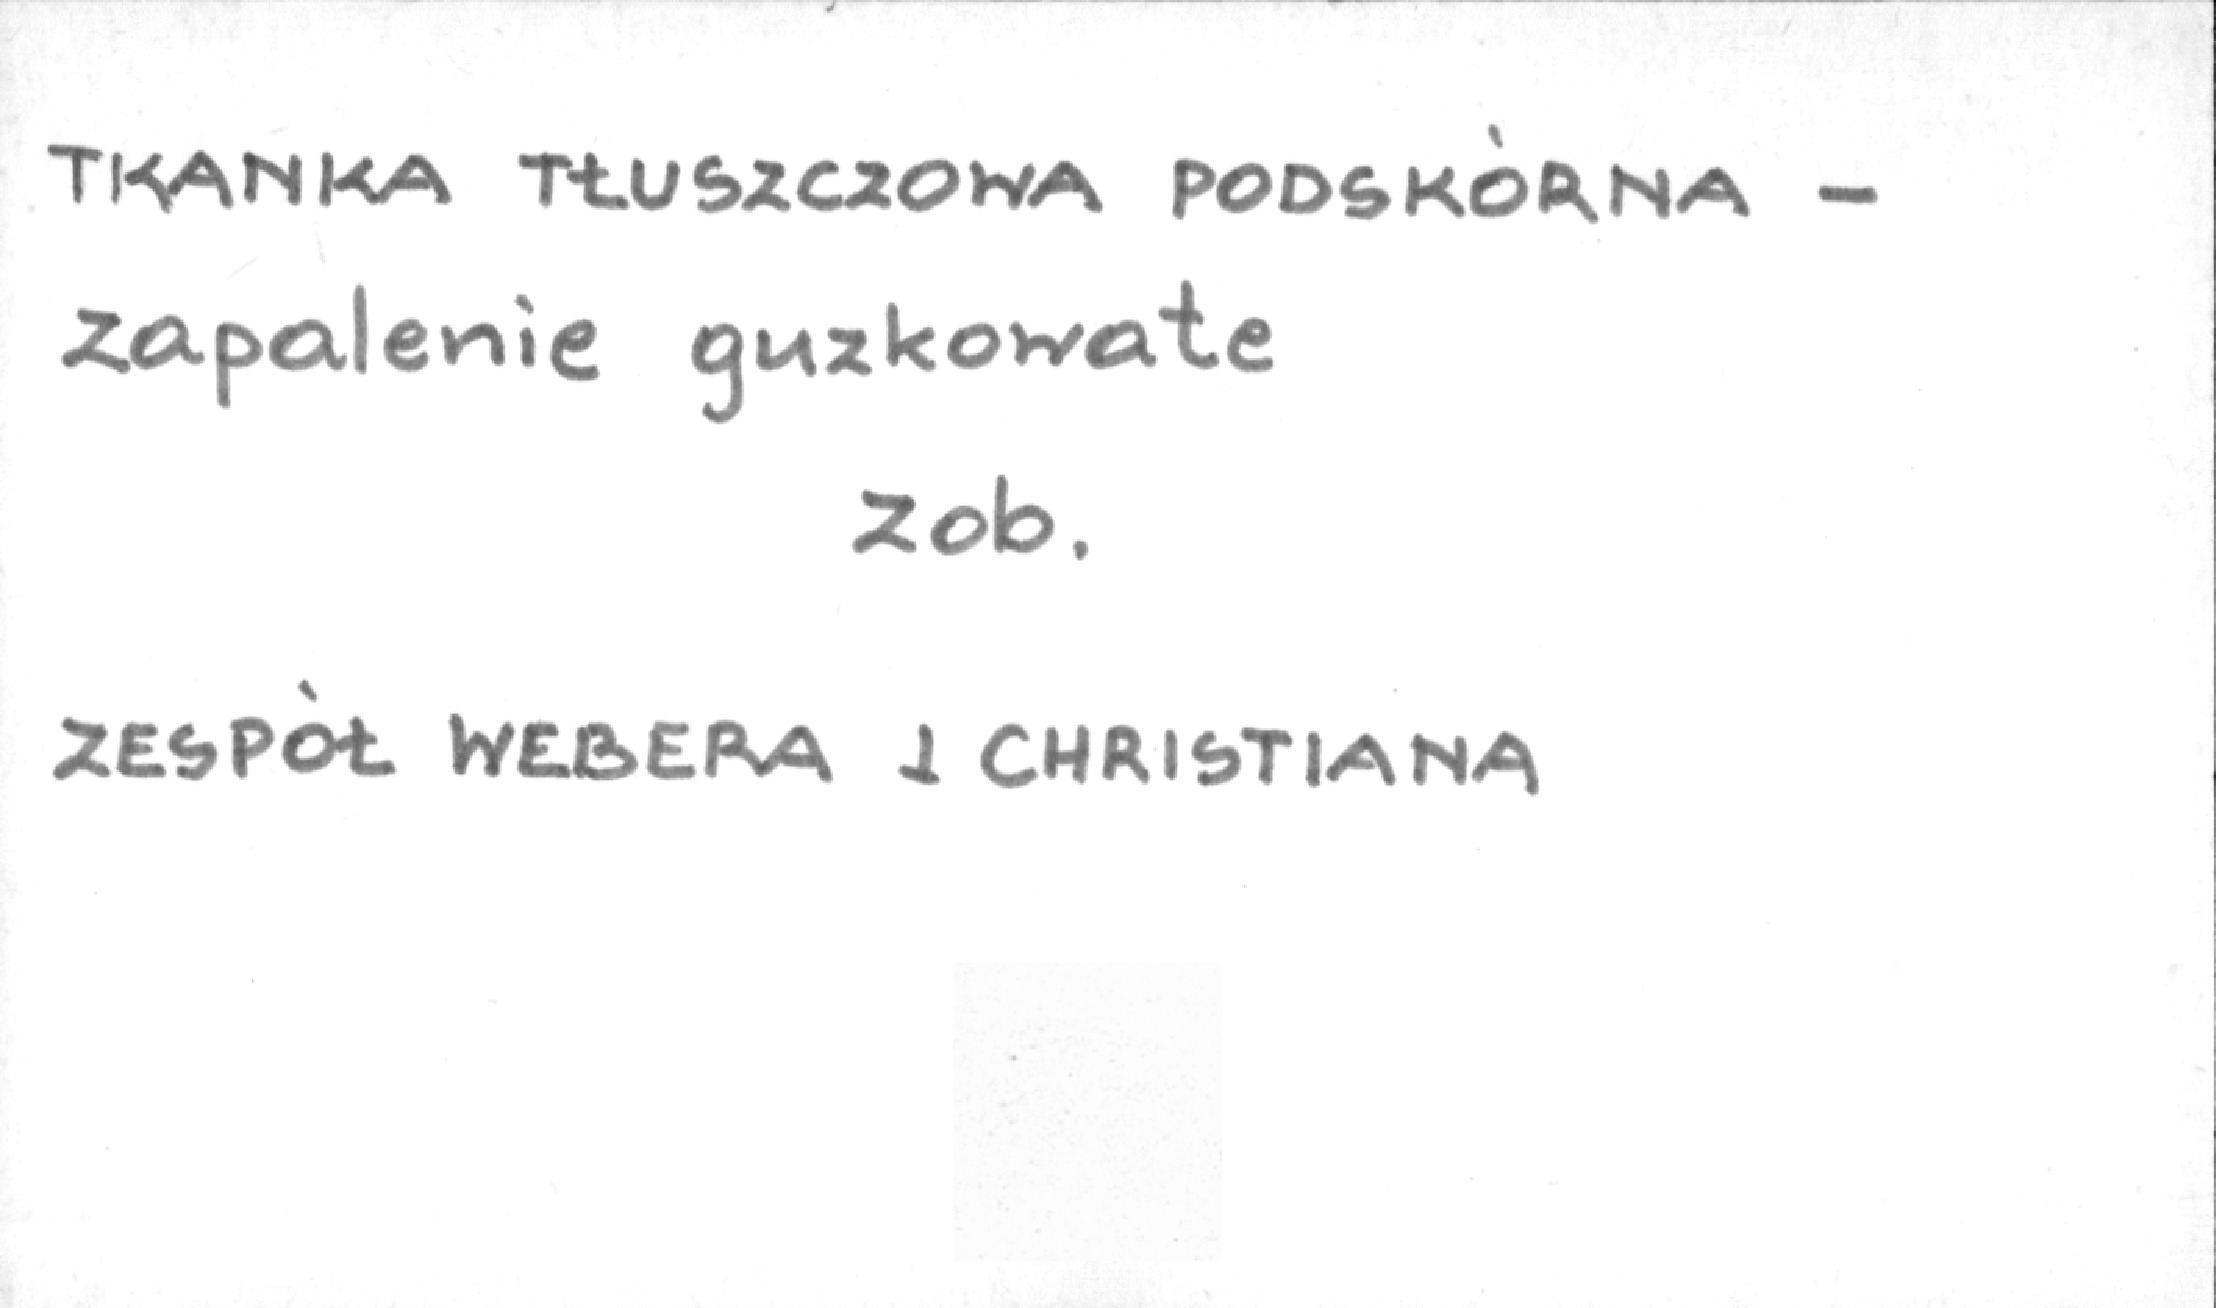 TKANKA TŁUSZCZOWA PODSKÓRNA -
zapalenie guzkowate
zob.
ZESPÓŁ WEBERA I CHRISTIANA